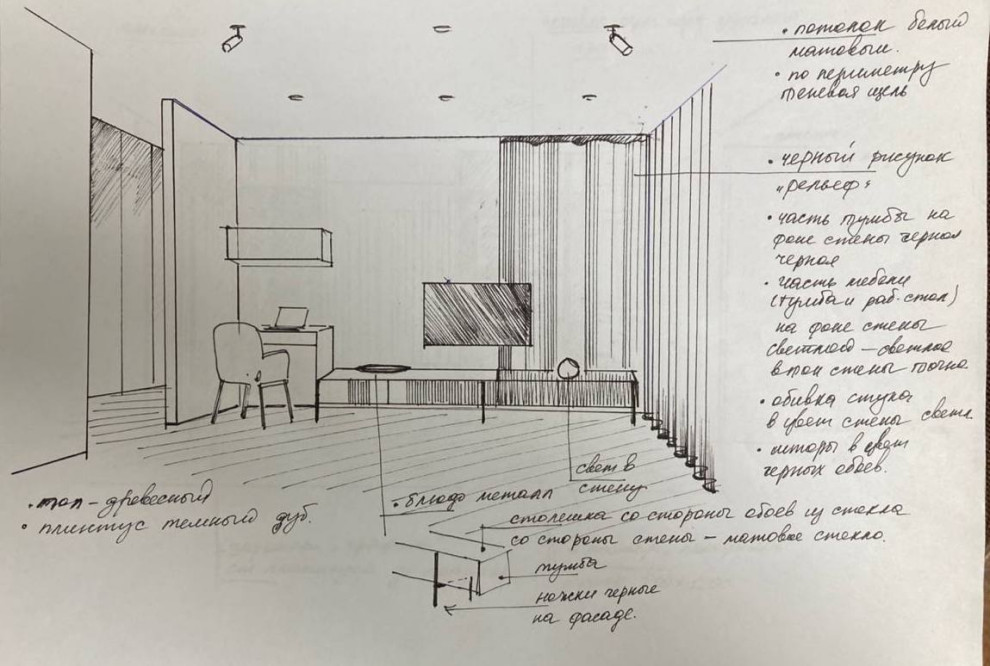 • потолок белый
матовый.
• по периметру
теневая щель
• черный рисунок
„рельеф“
• часть тумбы на
фоне стены черная
черная
• часть мебели
(тумба и раб. стол)
на фоне стены
светлого – светлое
в тон стены точно.
• обивка стула
в цвет стены светл.
• шторы в цвет
черных обоев.
свет в
стену
• пол – древесный
• плинтус темный дуб.
• блюдо металл
столешка со стороны обоев из стекла
со стороны стены – матовое стекло.
тумба
ножки черные
на фасаде.